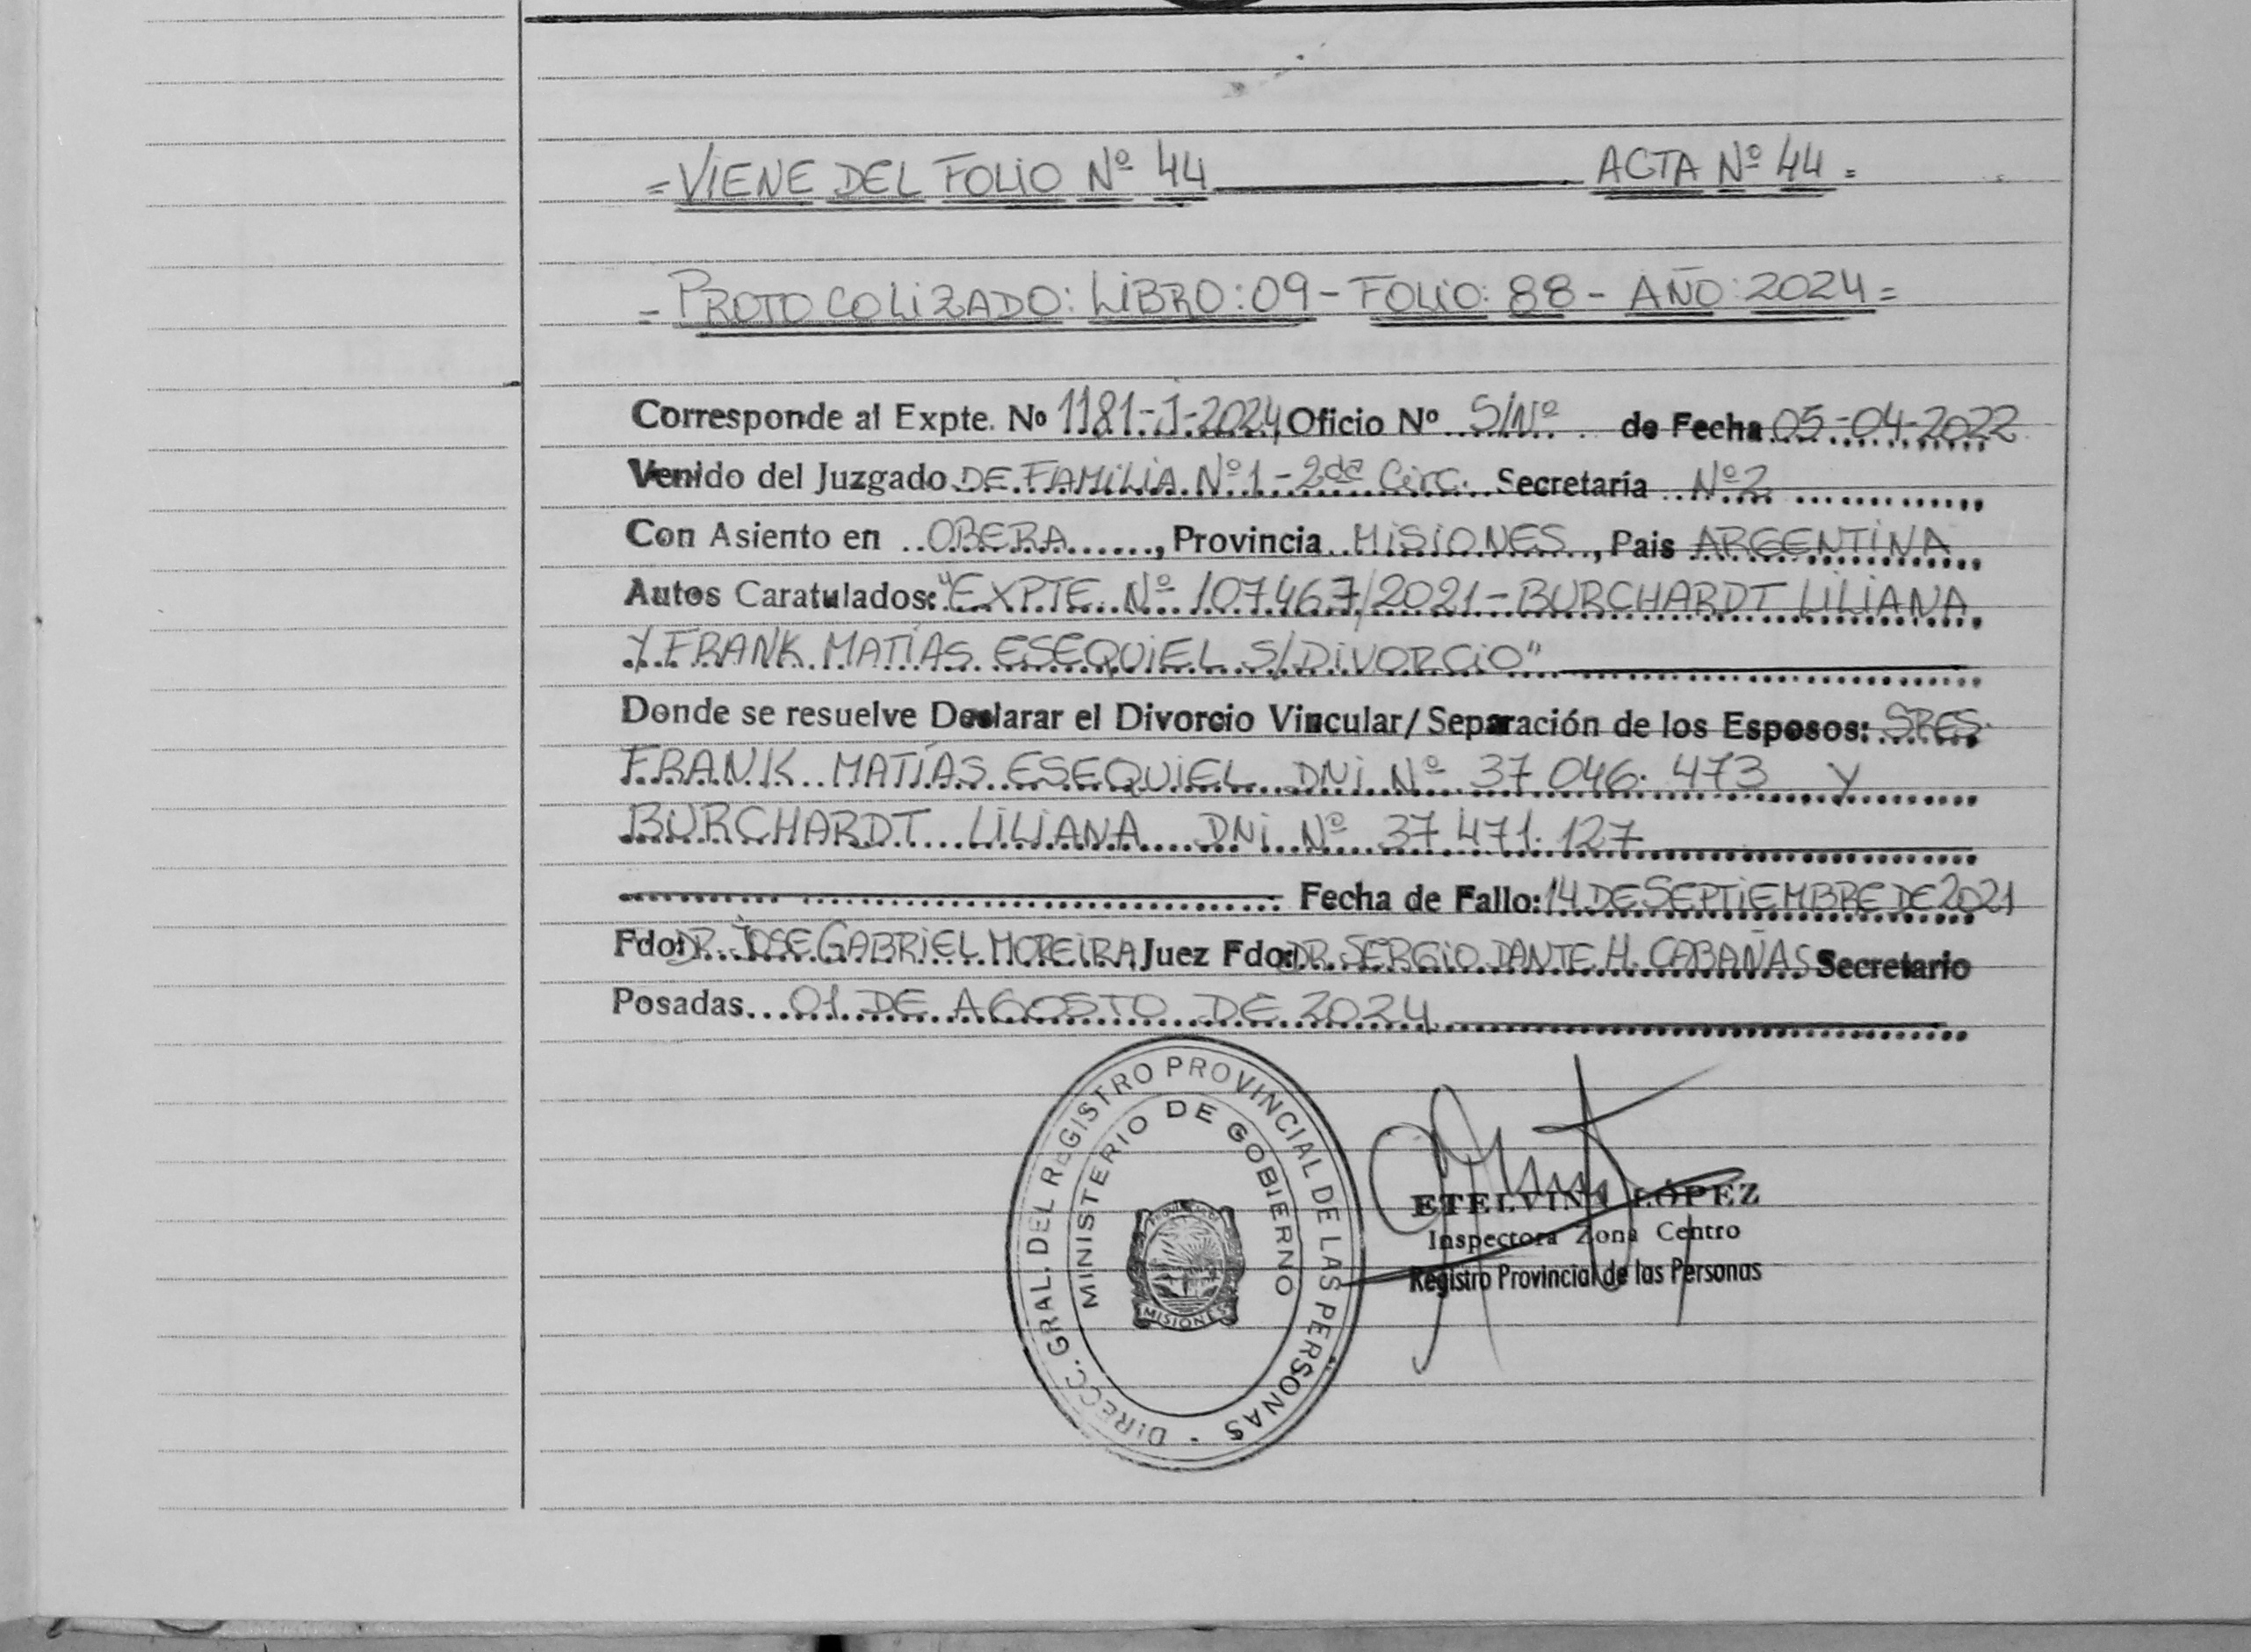 =VIENE DEL FOLIO Nº 44 ACTA Nº 44=
=PROTOCOLIZADO: LIBRO: 09 - FOLIO: 88 - AÑO: 2024=
Corresponde al Expte. Nº 1181-J-2024 Oficio Nº S/Nº de Fecha 05-04-2022
Venido del Juzgado DE FAMILIA Nº1 - 2da Circ. Secretaría Nº2
Con Asiento en OBERA, Provincia MISIONES, Pais ARGENTINA
Autos Caratulados: "EXPTE. Nº 107.467/2021 - BURCHARDT LILIANA
Y FRANK MATÍAS ESEQUIEL S/DIVORCIO"
Donde se resuelve Declarar el Divorcio Vincular/Separación de los Esposos: SRES.
FRANK MATÍAS ESEQUIEL DNI Nº 37.046.473 Y
BURCHARDT LILIANA DNI Nº 37.471.127
Fecha de Fallo: 14 DE SEPTIEMBRE DE 2021
Fdo: DR. JOSE GABRIEL MOREIRA Juez Fdo: DR. SERGIO DANTE H. CABAÑAS Secretario
Posadas 01 DE AGOSTO DE 2024
DIRECC. GRAL. DEL REGISTRO PROVINCIAL DE LAS PERSONAS
MINISTERIO DE GOBIERNO
MISIONES
ETELVINA LÓPEZ
Inspectora Zona Centro
Registro Provincial de las Personas